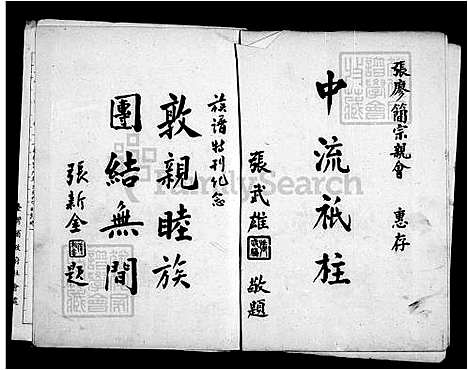 張廖簡宗親會 惠存
中流砥柱
張武雄 敬題
族譜特刊紀念
敦親睦族
團結無間
張新金 題
FamilySearch